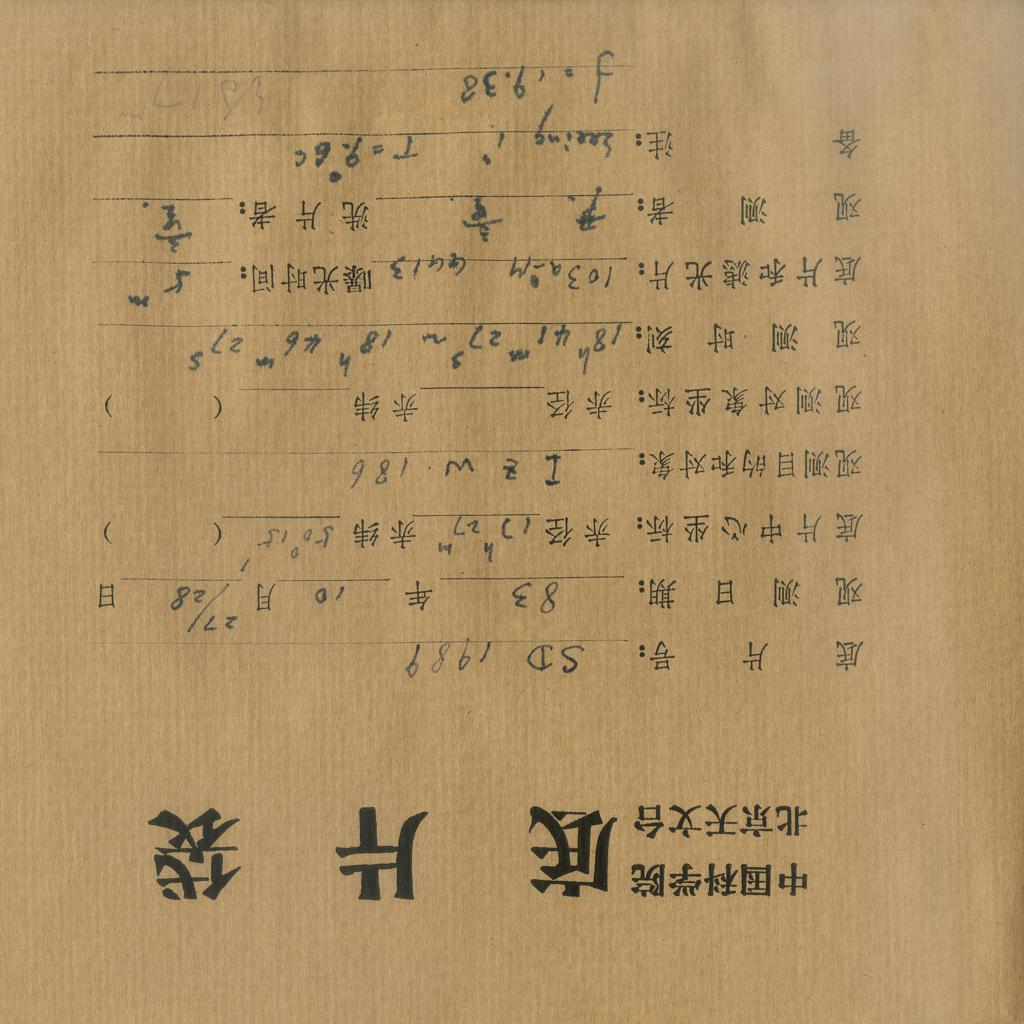 中国科学院
北京天文台 底片袋
底片号: SD 1989
观测日期: 83 年 10 月 27/28 日
底片中心坐标: 赤经 17h 27m 赤纬 50°15′ ( )
观测目的和对象: I Z W. 186
观测对象坐标: 赤经 赤纬 ( )
观测时刻: 18h 41m 27s ~ 18h 46m 27s
底片和滤光片: 103a GG13 曝光时间: 5m
观测者: 洗片者:
备注: Seeing 1" T=9.°6c
f=19.38